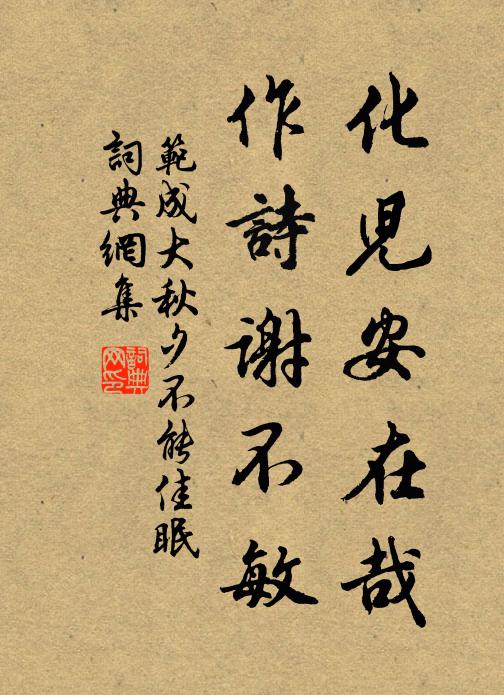 化兒安在哉
作詩謝不敏
範成大秋夕不能佳眠
詞典網集
詞典网印